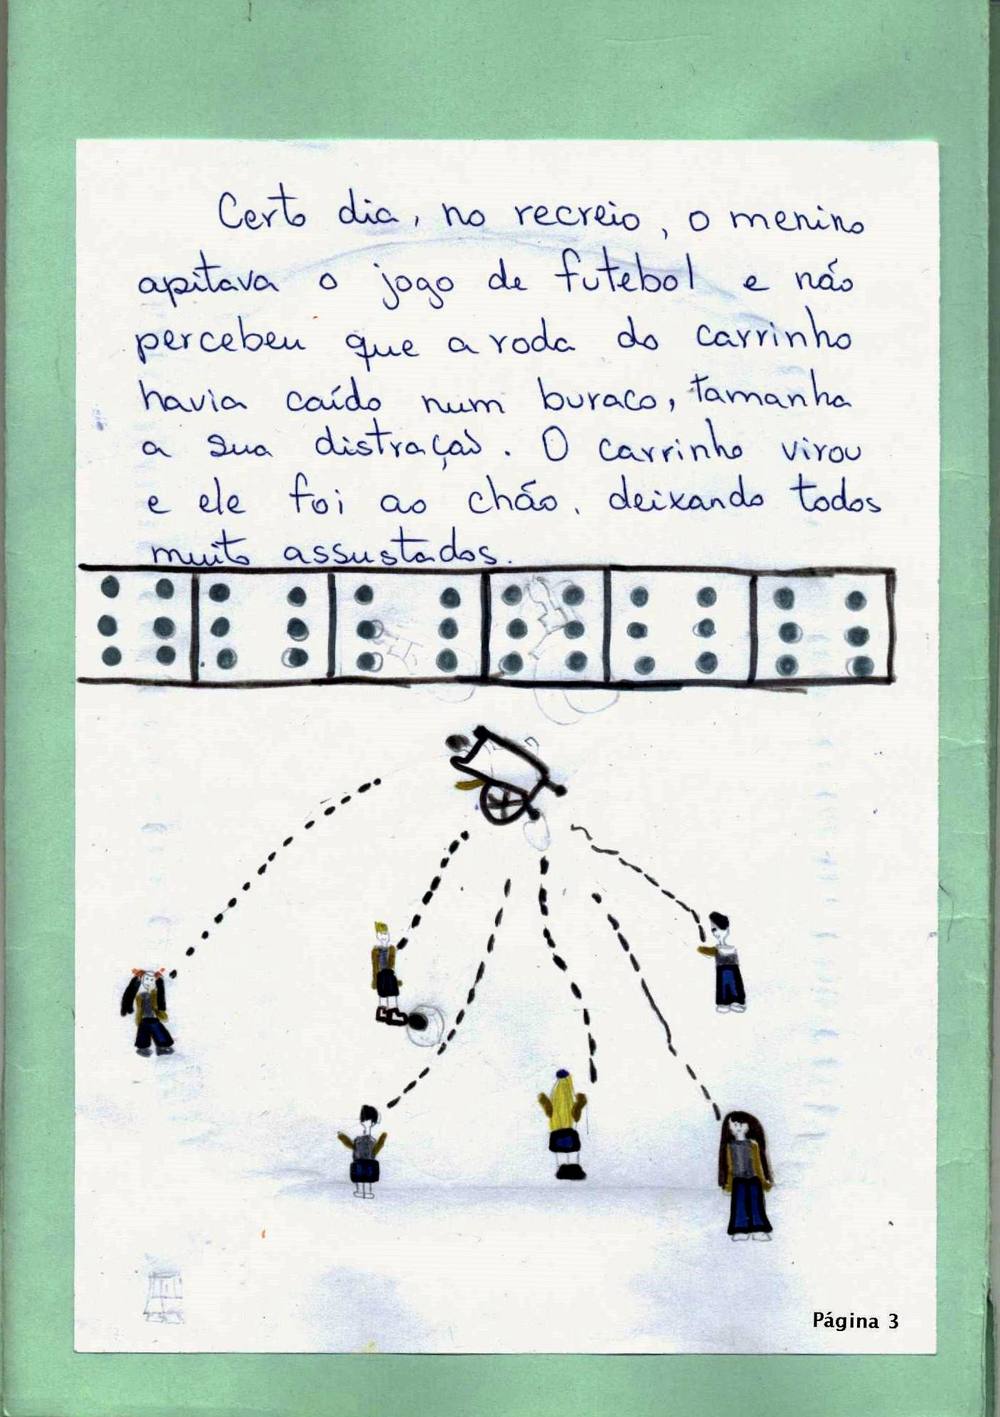 Certo dia, no recreio, o menino
apitava o jogo de futebol e não
percebeu que a roda do carrinho
havia caído num buraco, tamanha
a sua distração. O carrinho virou
e ele foi ao chão, deixando todos
muito assustados.
Página 3